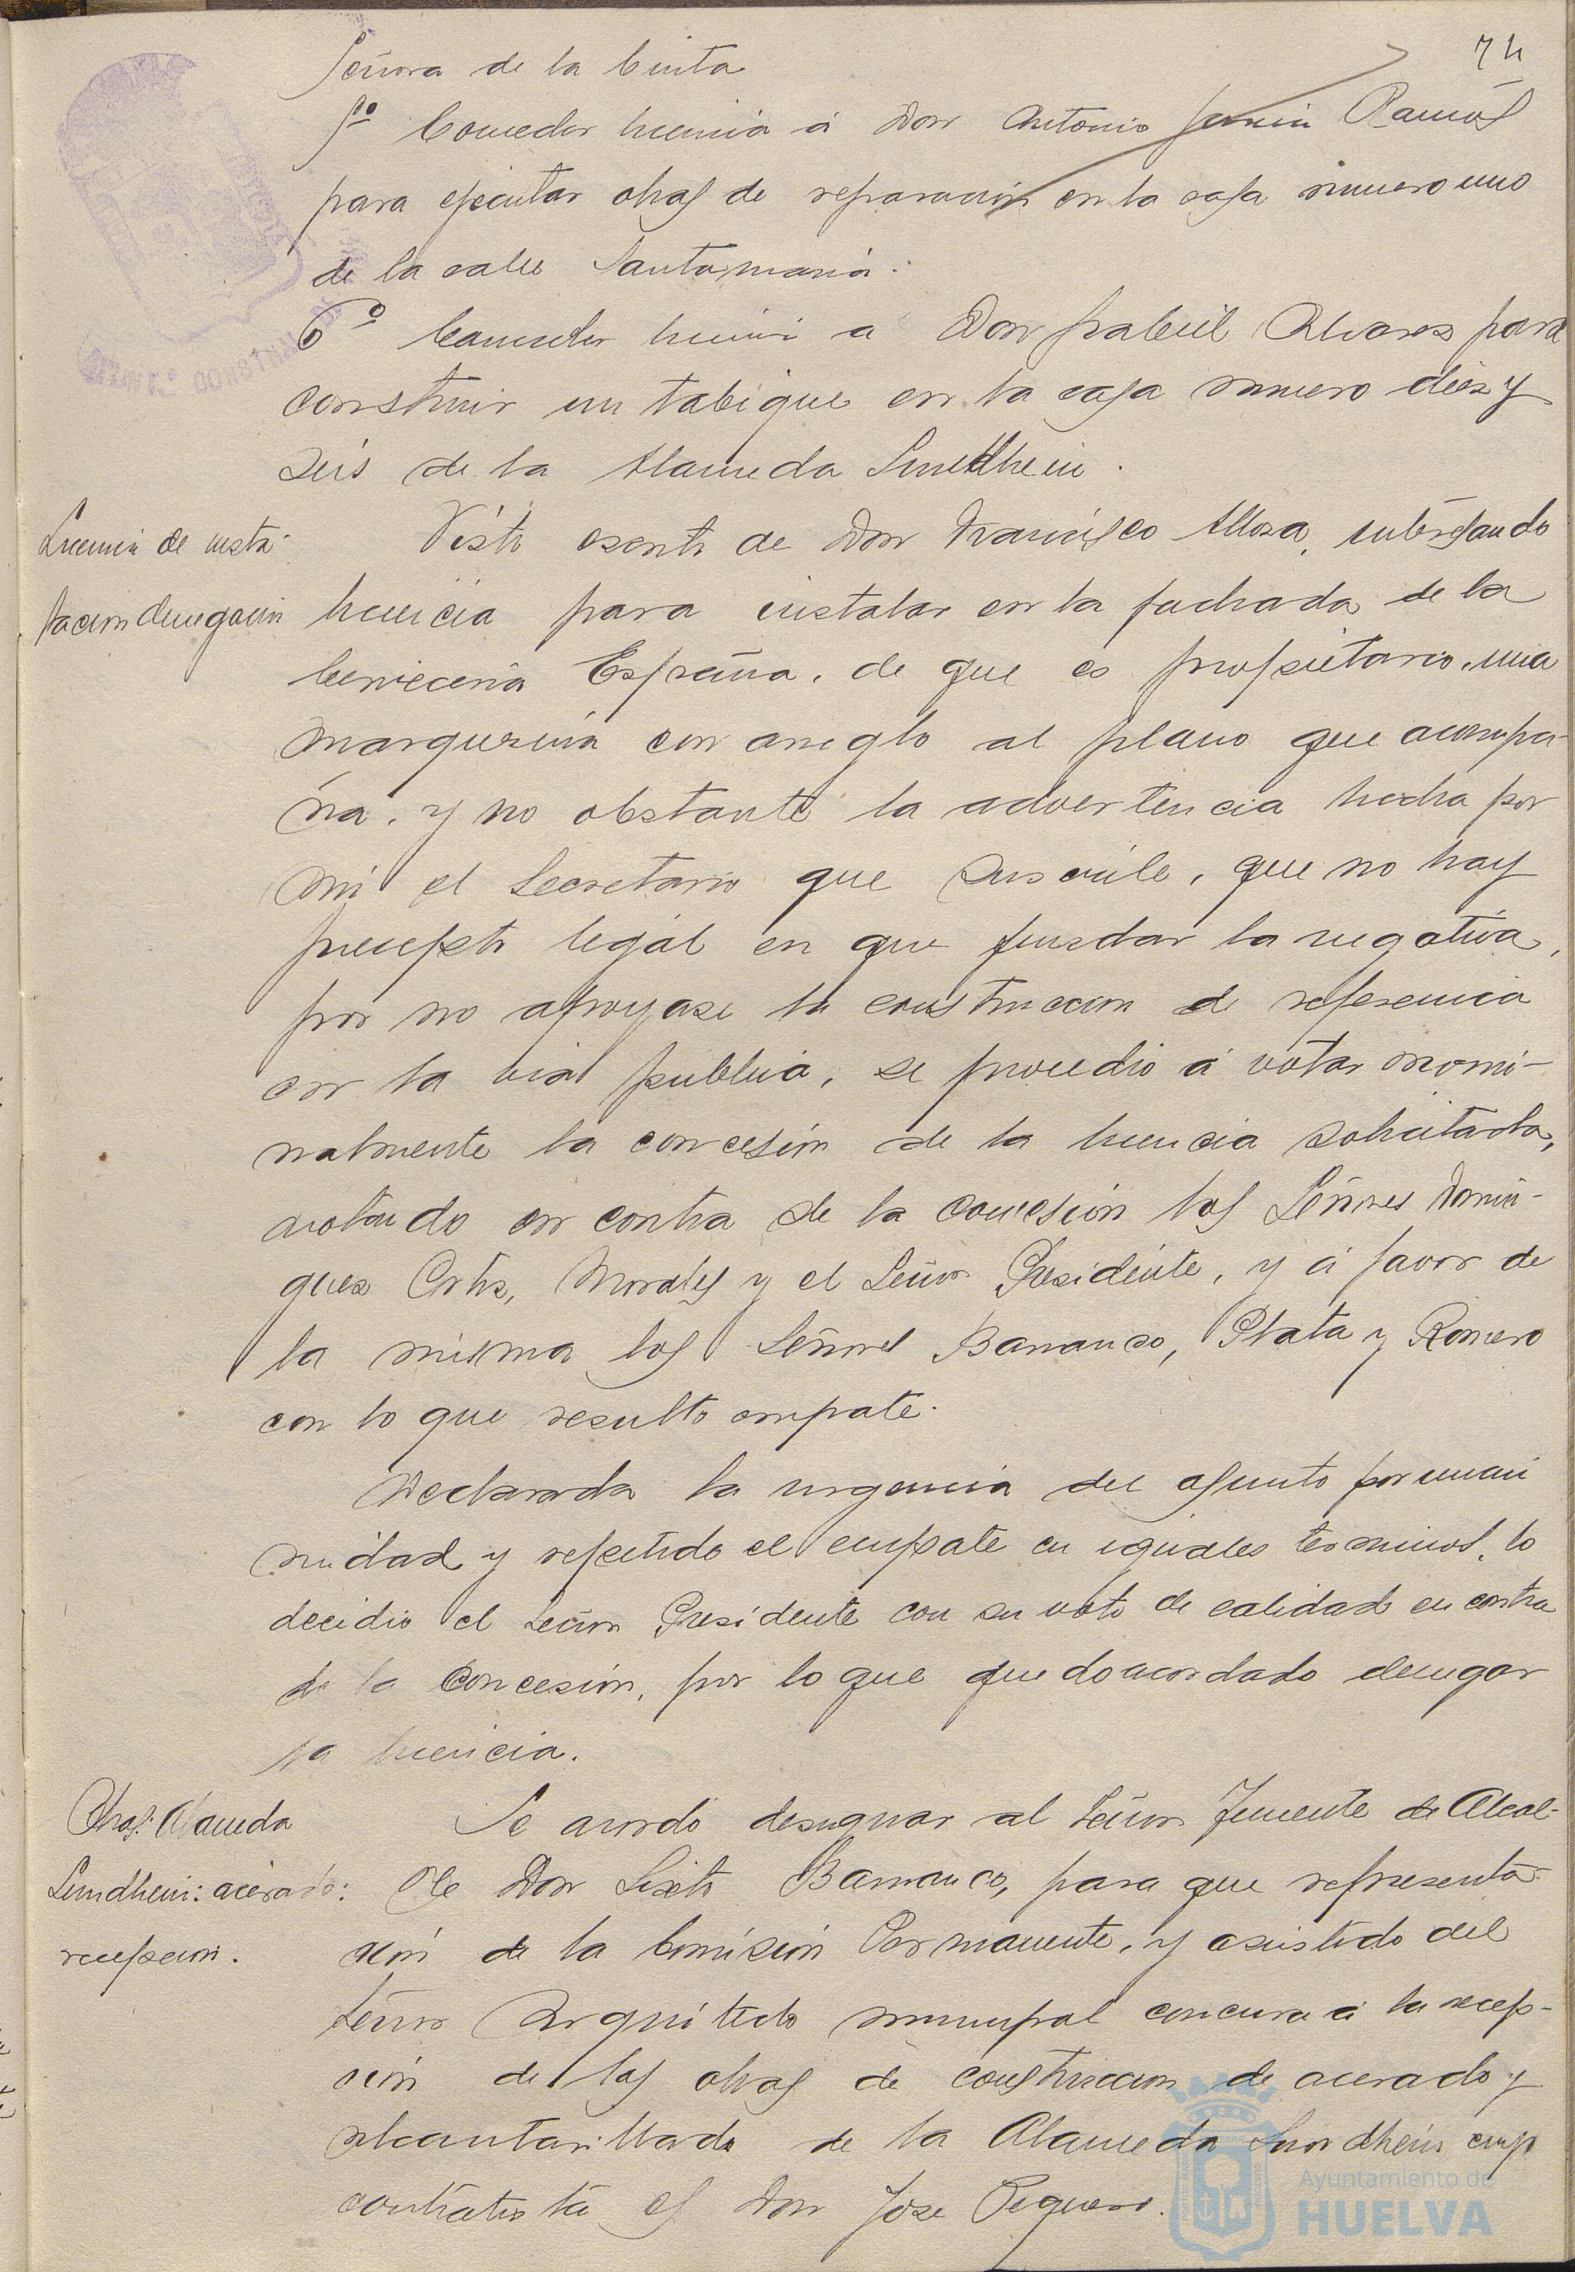 74
Señora de la Cinta
5º Conceder licencia á Don Antonio Ramos
para ejecutar obras de reparación en la casa número uno
de la calle Santa maria.
6º Conceder licencia a Don Gabriel Alvarez para
construir un tabique en la casa número diez y
seis de la Alameda Sundheim.
Licencia de insta-
lacion denegacion
Visto escrito de Don Francisco Allosa, interesando
licencia para instalar en la fachada de la
Cervecería España, de que es propietario, una
marquesina con arreglo al plano que acompa-
ña, y no obstante la advertencia hecha por
mi el Secretario que suscribe, que no hay
precepto legal en que fundar la negativa,
por no apoyase la construccion de referencia
en la via publica, se procedio á votar nomi-
nalmente la concesión de la licencia solicitada,
votando en contra de la concesión los Señores Domin-
guez Ortiz, Morales y el Señor Presidente, y á favor de
la misma los Señores Barranco, Plata y Romero
con lo que resulto empate.
Declarada la urgencia del asunto por unani
midad y repetido el empate en iguales terminos, lo
decidio el Señor Presidente con su voto de calidad en contra
de la Concesión, por lo que quedo acordado denegar
la licencia.
Obras: Alameda
Sundheim: acerado:
recepcion.
Se acordo designar al Señor Teniente de Alcal-
de Don Sixto Barranco, para que representa-
ción de la Comisión Permanente, y asistido del
Señor Arquitecto municipal concurra á la recep-
ción de las obras de construccion de acerado y
alcantarillado de la Alameda Sundheim cuyo
contratista es Don Jose Peguero.
Ayuntamiento de
HUELVA